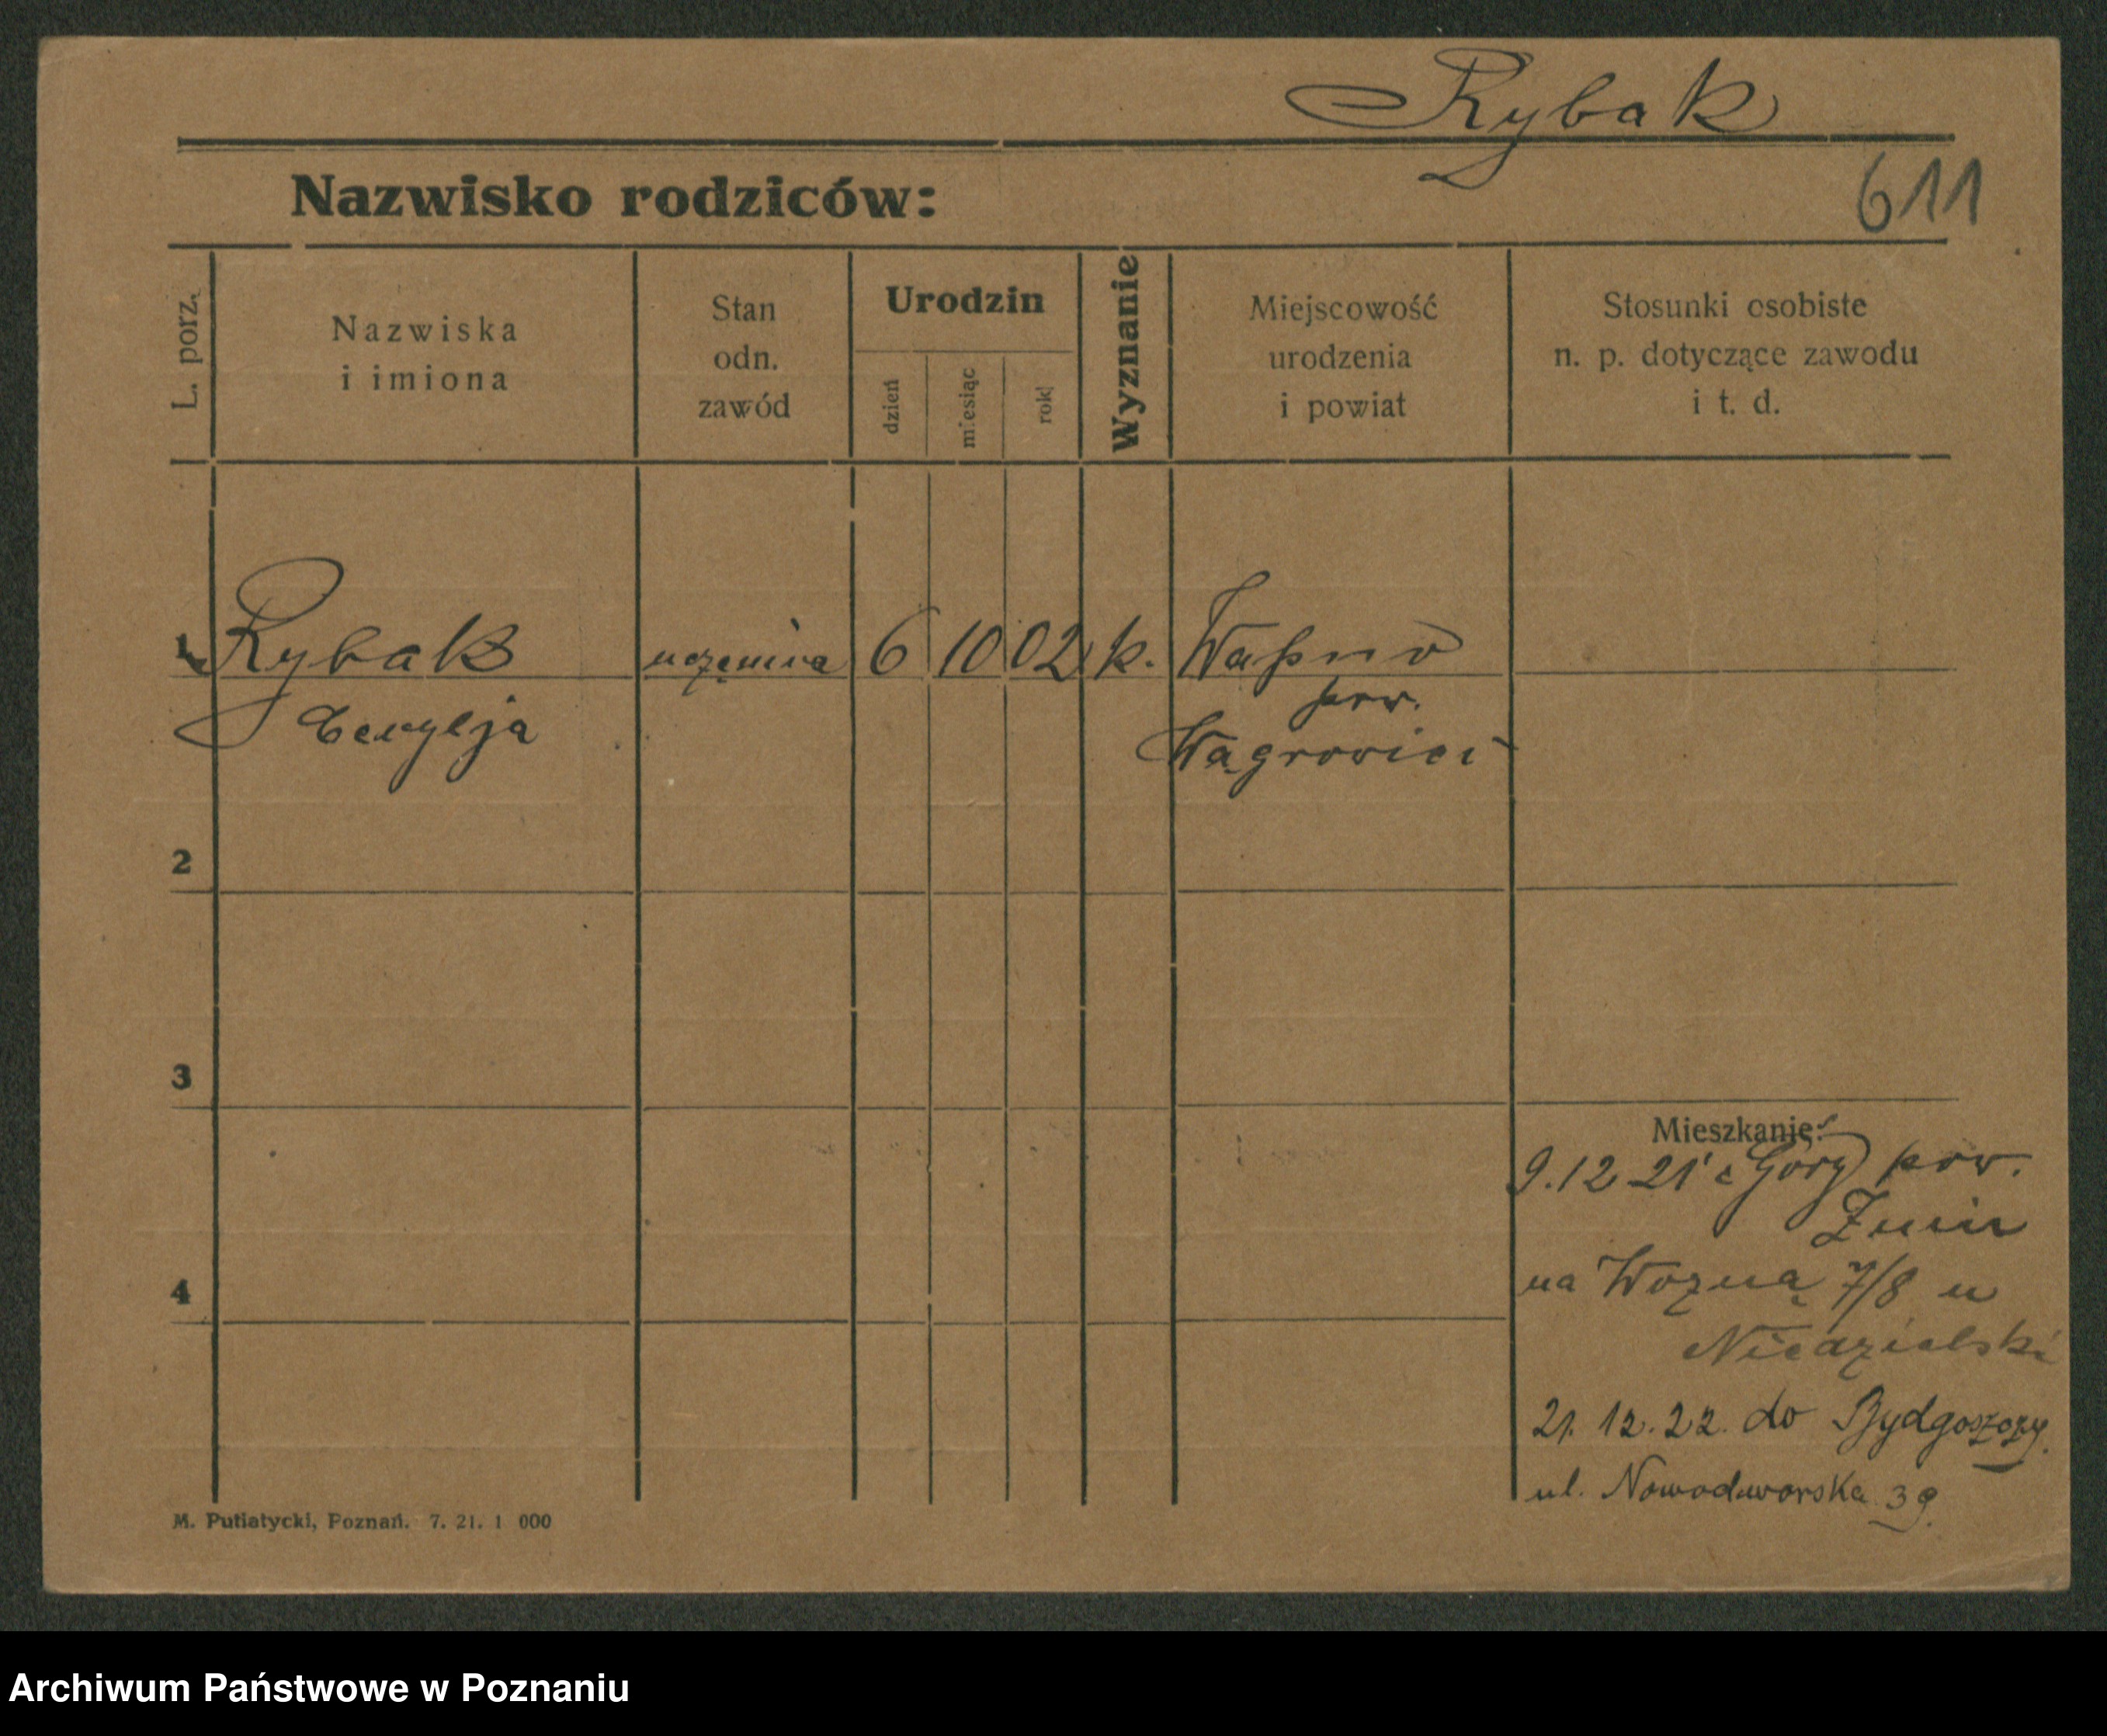 Rybak
611
Nazwisko rodziców:
L. porz.
Nazwiska
i imiona
Stan
odn.
zawód
Urodzin
dzień
miesiąc
rok
Wyznanie
Miejscowość
urodzenia
i powiat
Stosunki osobiste
n. p. dotyczące zawodu
i t. d.
1 Rybak uczenica 6 10 02 k. Wapno
Cecylja
pow.
Wągrowiec
2
3
4
Mieszkanie:
9.12 21 z Góry pow.
Żnin
na Wozną 7/8 u
Niedzielski
21. 12. 22. do Bydgoszczy.
ul. Nowodworska 39.
M. Putiatycki, Poznań. 7. 21. 1 000
Archiwum Państwowe w Poznaniu